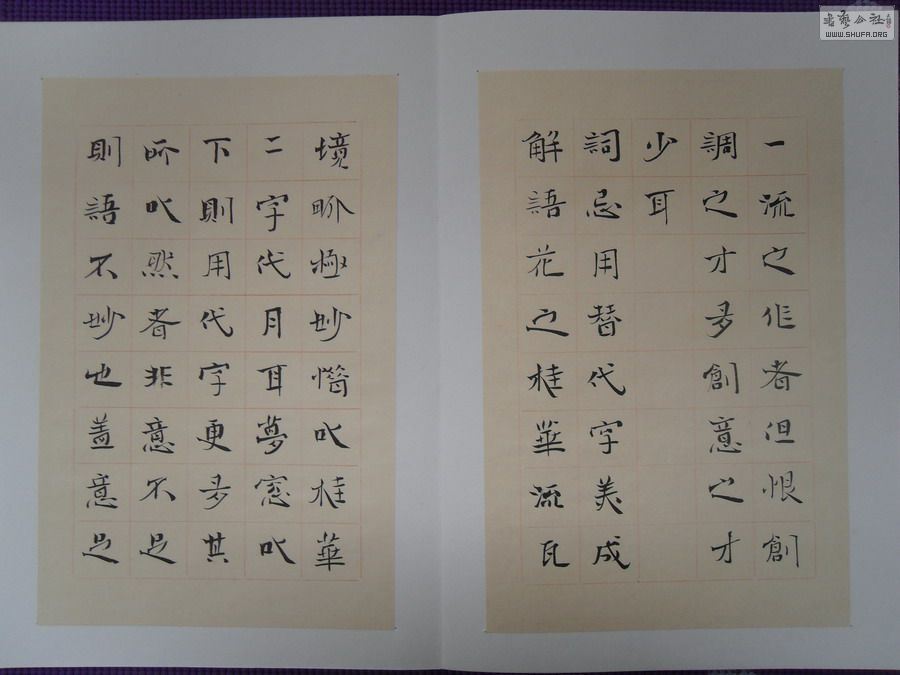 書藝公社
WWW.SHUFA.ORG
一流之作者但恨創
調之才多創意之才
少耳
詞忌用替代字美成
解語花之桂華流瓦
境畍極妙惜以桂華
二字代月耳夢窓以
下則用代字更多其
所以然者非意不足
則語不妙也蓋意足